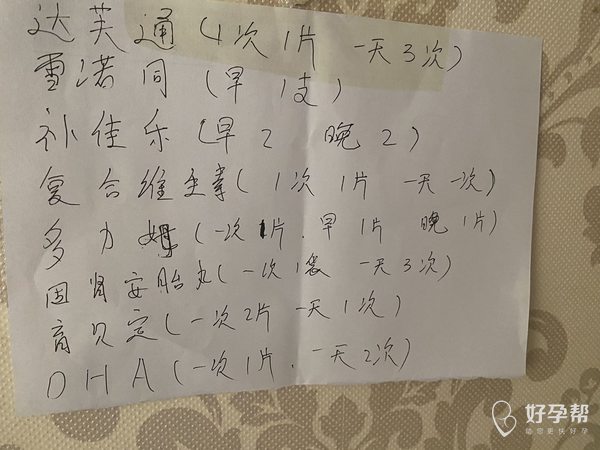 达芙通(1次1片 一天3次)
雪诺同(早1支)
补佳乐(早2 晚2)
复合维生素(1次1片 一天一次)
多力姆(一次1片.早1片 晚1片)
固肾安胎丸(一次1袋 一天3次)
育贝定(一次2片一天1次)
DHA(一次1片.一天2次)
好孕帮
助您更快好孕